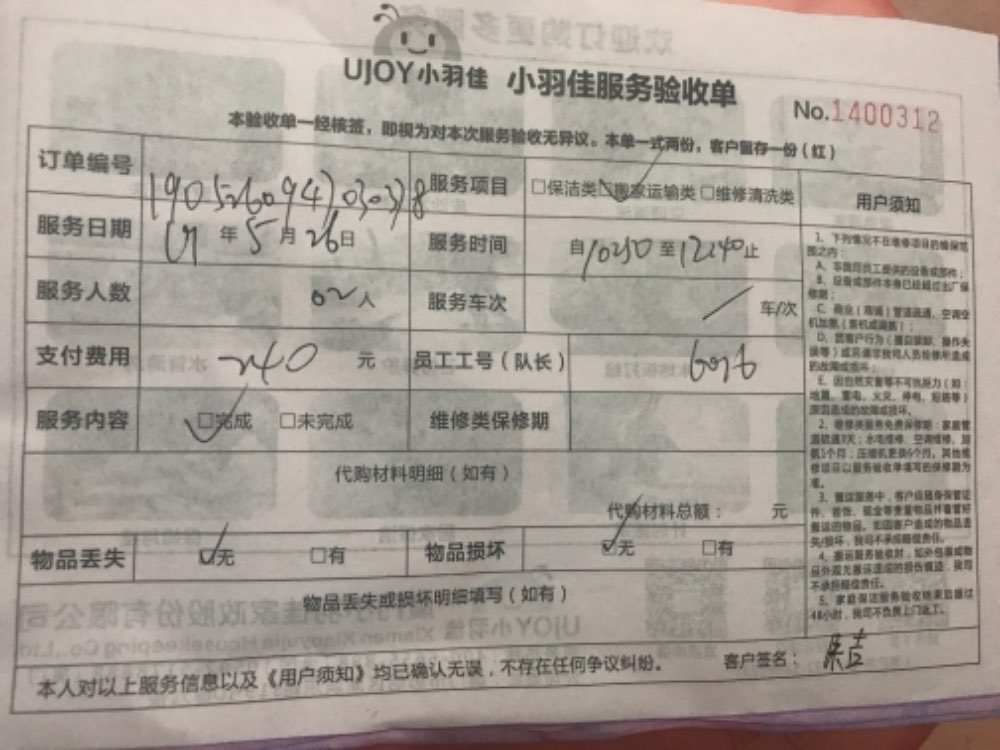 UJOY小羽佳 小羽佳服务验收单
No.1400312
本验收单一经核签，即视为对本次服务验收无异议。本单一式两份，客户留存一份（红）
订单编号 服务项目 □保洁类 ☑搬家运输类 □维修清洗类
服务日期 19年5月26日 服务时间 自10:50至12:40止
服务人数 02人 服务车次 / 车/次
支付费用 240 元 员工工号（队长）
服务内容 ☑完成 □未完成 维修类保修期
代购材料明细（如有）
代购材料总额： 元
物品丢失 ☑无 □有 物品损坏 ☑无 □有
物品丢失或损坏明细填写（如有）
本人对以上服务信息以及《用户须知》均已确认无误，不存在任何争议纠纷。 客户签名：
用户须知
1、下列情况不在维修项目的维保范
围之内：
A、非我司员工提供的设备或部件；
B、设备或部件本身已经超过出厂保
修期；
C、商业（商铺）管道疏通、空调空
D、因客户行为
的故障或损坏；
E、因自然灾害等不可抗拒力（如：
地震、雷电、火灾、停电、短路等）
原因造成的故障或损坏。
2、维修类服务免费保修期：家庭管
道疏通7天；水电维修、空调维修、加
氨1个月；压缩机更换6个月。其他维
修项目以服务验收单填写的保修期为
准。
3、搬运服务中，客户应随身保管证
件、首饰、现金等贵重物品并看管好
搬运的物品。如因客户造成的物品丢
失/损坏，我司不承担赔偿责任。
4、搬运服务验收时，如外包装或物
品外观无搬运造成的损伤痕迹，我司
不承担赔偿责任。
5、家庭保洁服务验收结束后超过
48小时，我司不负责上门返工。